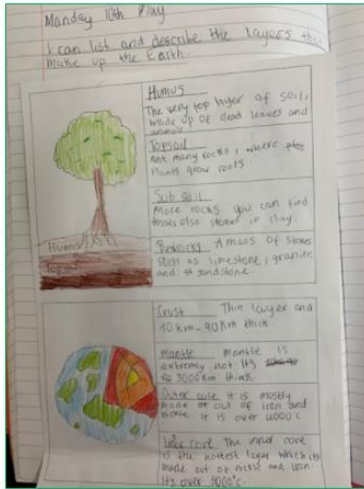 Monday 10th May
I can list and describe the layers that
make up the Earth.
Humus
The very top layer of soil,
made up of dead leaves and
animals
Topsoil
Not many rocks, where
Plants grow roots.
Sub soil
More rocks you can find
also stones in clay.
Bedrocks A mass of stones
such as limestone, granite
and sandstone.
Humus
Topsoil
Crust Thin layer and
10 km - 90 km thick
Mantle mantle is
extremely hot It's
3000 km thick
Outer core it is mostly
made out of iron and
it is over 4000 c
Inner core The inner core
is the hottest layer which its
made out of and iron
It's over 5000°c.